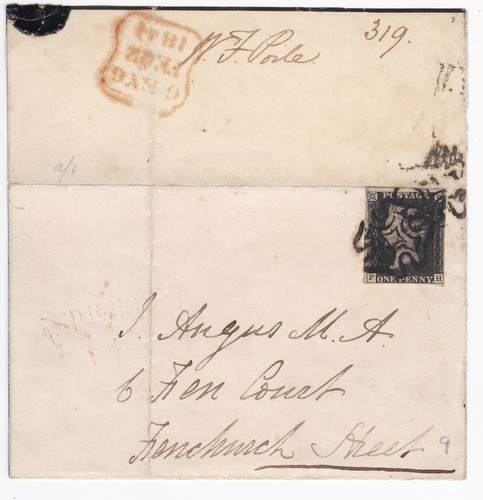 319.
W. F. Poile
6 EVG
1841
a/c
POSTAGE
F H
ONE PENNY
J. Angus M. A.
6 Fen Court
Fenchurch Street
9